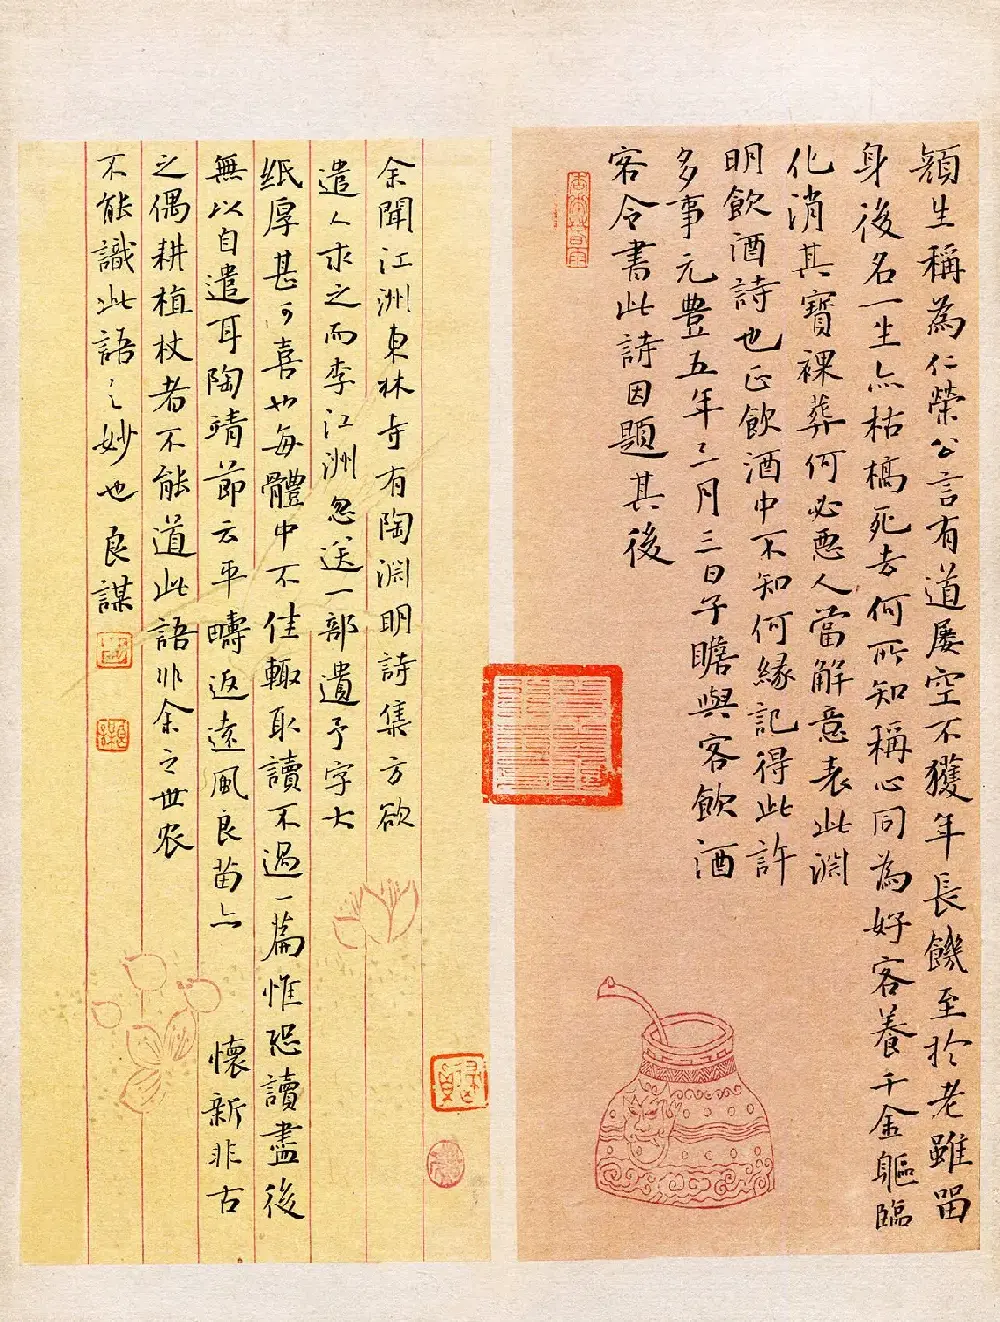 顏生稱為仁榮公言有道屡空不獲年長饑至於老雖留
身後名一生亦枯槁死去何所知稱心同為好客養千金軀臨
化消其寶裸葬何必惡人當解意表此淵
明飲酒詩也正飲酒中不知何緣記得此許
多事元豊五年三月三日子瞻與客飲酒
客令書此詩因題其後
余聞江洲東林寺有陶淵明詩集方欲
遣人求之而李江洲忽送一部遺予字大
纸厚甚可喜也每體中不佳輙取讀不過一篇惟恐讀盡後
無以自遣耳陶靖節云平疇返遠風良苗亦 懷新非古
之偶耕植杖者不能道此語非余之世农
不能識此語之妙也 良謀